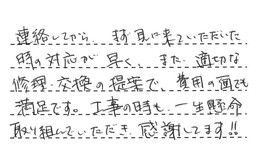 連絡してから、まず見に来ていただいた
時の対応が早く、また、適切な
修理、交換の提案で、費用の面でも
満足です。工事の時も、一生懸命
取り組んでいただき、感謝してます!!